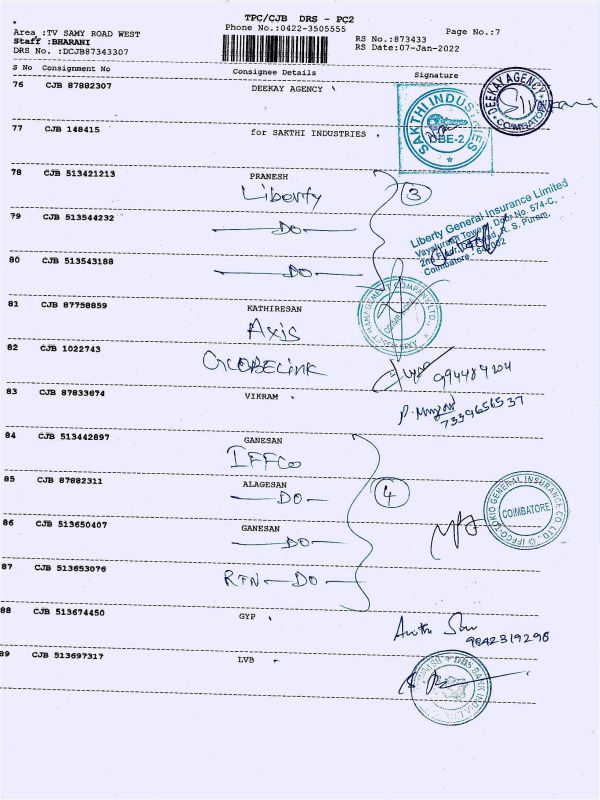 TPC/CJB DRS - PC2
Phone No.:0422-3505555
Page No.:7
Area :TV SAMY ROAD WEST
Staff :BHARANI
DRS No. :DCJB87343307
RS No.:873433
RS Date:07-Jan-2022
S No Consignment No Consignee Details Signature
76 CJB 87882307 DEEKAY AGENCY
DEEKAY AGENCY
COIMBATORE
77 CJB 148415 for SAKTHI INDUSTRIES
SAKTHI INDUSTRIES
CBE-2
78 CJB 513421213 PRANESH
Liberty
3
79 CJB 513544232
DO
Liberty General Insurance Limited
Door No. 574-C,
R. S. Puram,
Coimbatore
80 CJB 513543188
DO
81 CJB 87758859 KATHIRESAN
Axis
AXIS ASSET MANAGEMENT COMPANY LTD.,
COIMBATORE
82 CJB 1022743
GLOBELINK
83 CJB 87833674 VIKRAM
7339656537
84 CJB 513442897 GANESAN
IFFCo
85 CJB 87882311 ALAGESAN
DO
4
86 CJB 513650407 GANESAN
DO
IFFCO-TOKIO GENERAL INSURANCE CO. LTD.,
COIMBATORE
87 CJB 513653076
RTN DO
88 CJB 513674450 GYP
9842319296
89 CJB 513697317 LVB
DBS BANK INDIA LTD